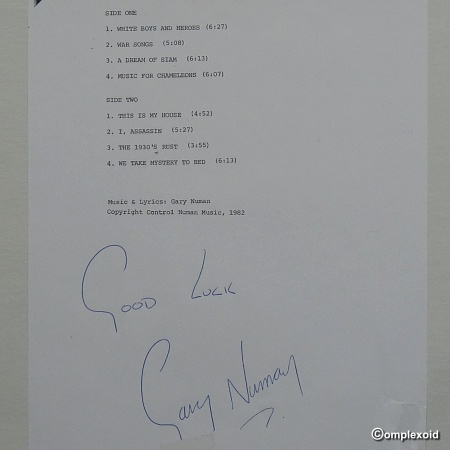 SIDE ONE
1. WHITE BOYS AND HEROES (6:27)
2. WAR SONGS (5:08)
3. A DREAM OF SIAM (6:13)
4. MUSIC FOR CHAMELEONS (6:07)
SIDE TWO
1. THIS IS MY HOUSE (4:52)
2. I, ASSASSIN (5:27)
3. THE 1930'S RUST (3:55)
4. WE TAKE MYSTERY TO BED (6:13)
Music & Lyrics: Gary Numan
Copyright Control Numan Music, 1982
GOOD LUCK
Gary Numan
©omplexoid